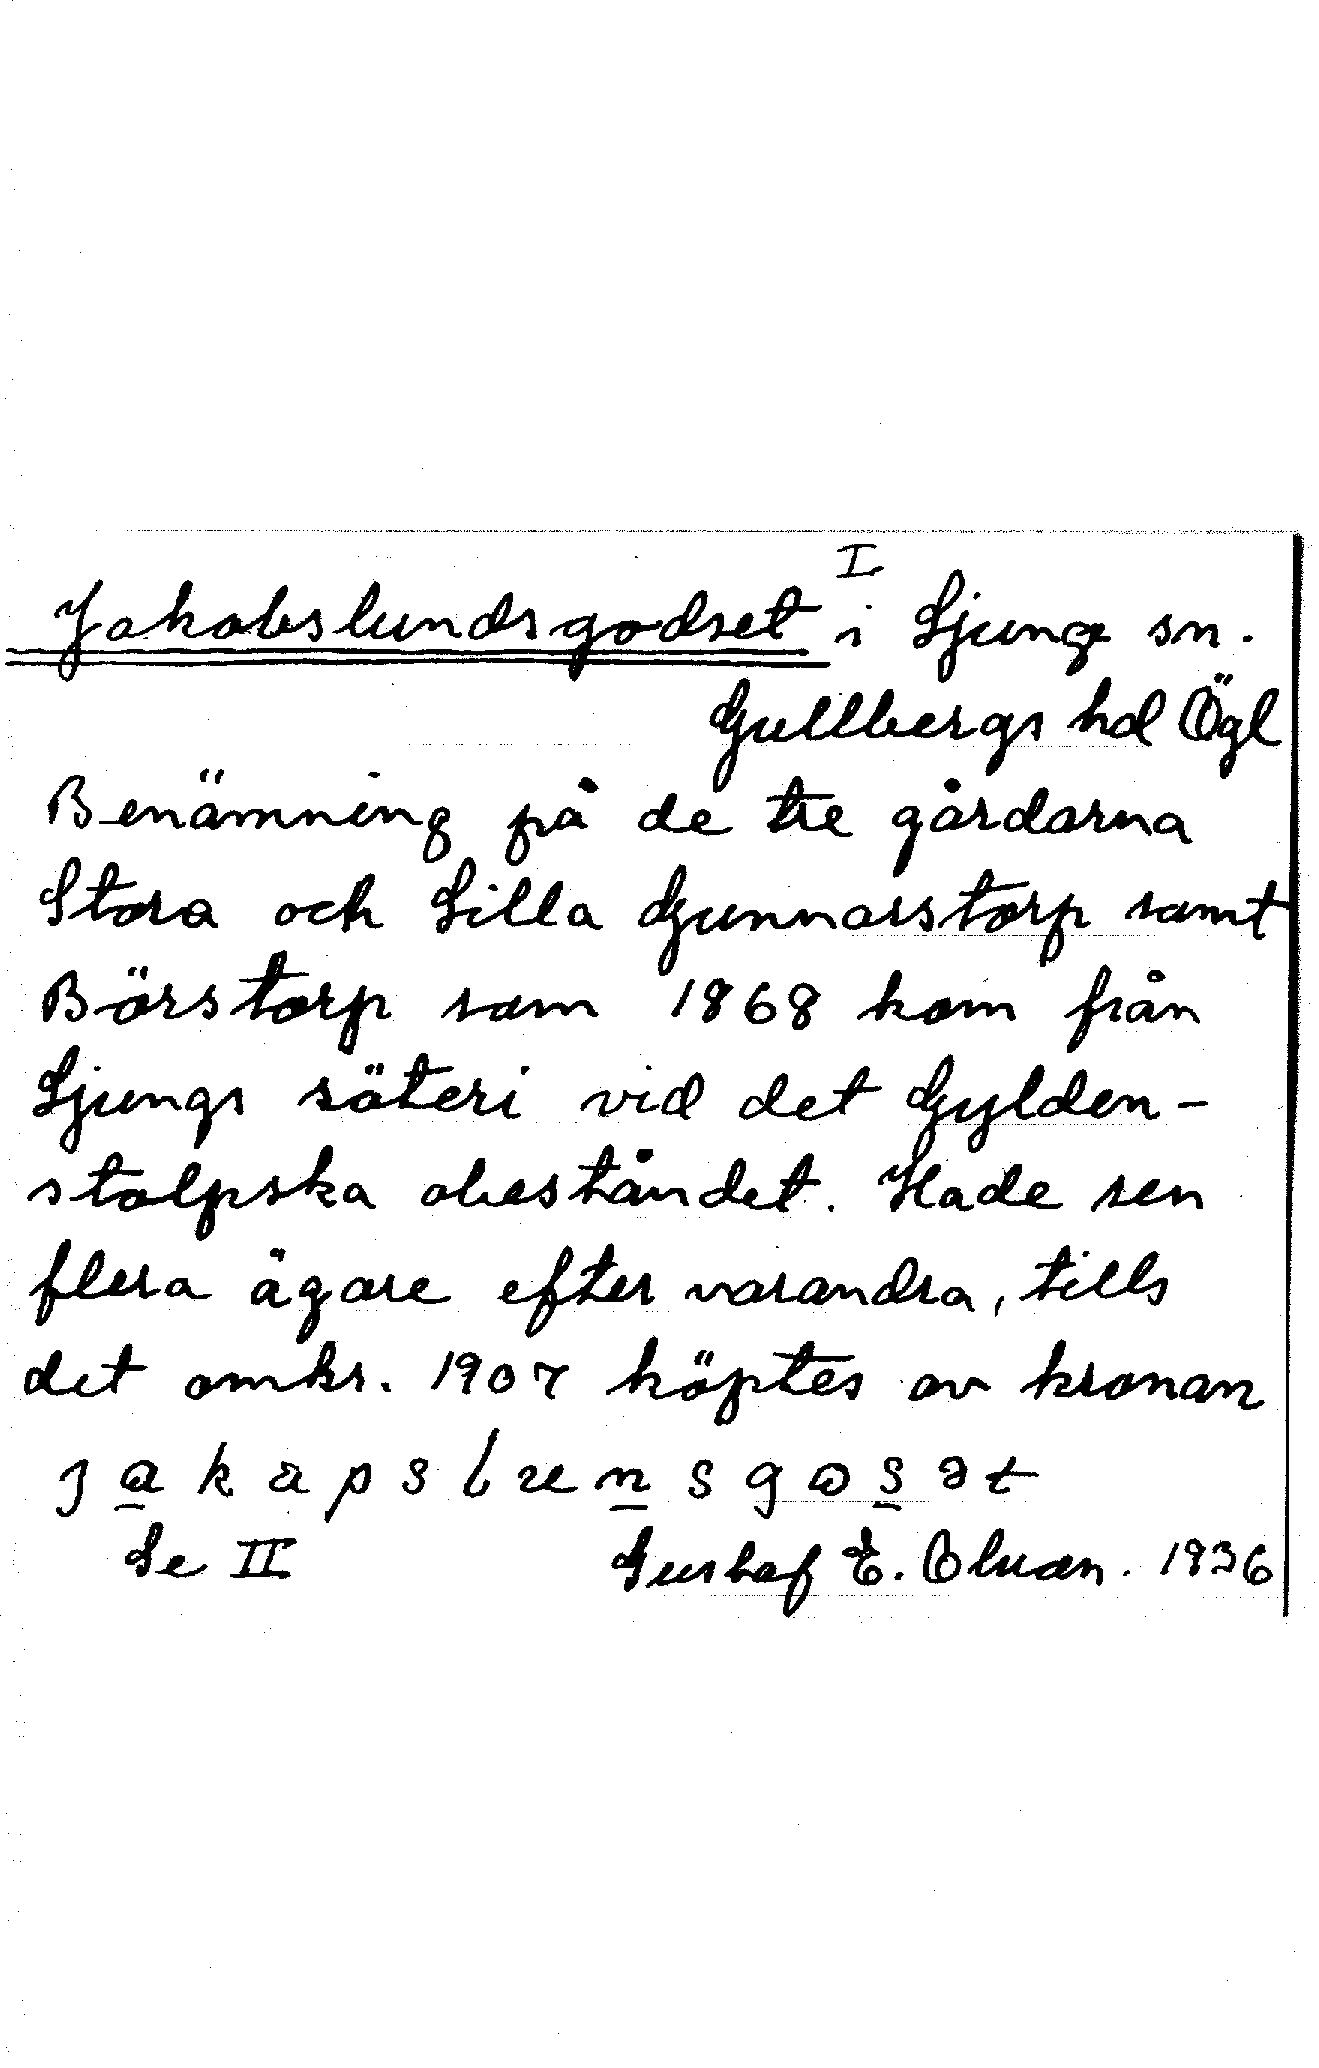 Jakobslundsgodset I i Ljungs sn.
Gullbergs hd Ögl
Benämning på de tre gårdarna
Stora och Lilla Gunnorstorp samt
Börstorp som 1868 kom från
Ljungs säteri vid det Gylden-
stolpska obeståndet. Hade sen
flera ägare efter varandra, tills
det omkr. 1907 köptes av kronan
Se II Gustaf E. 1936